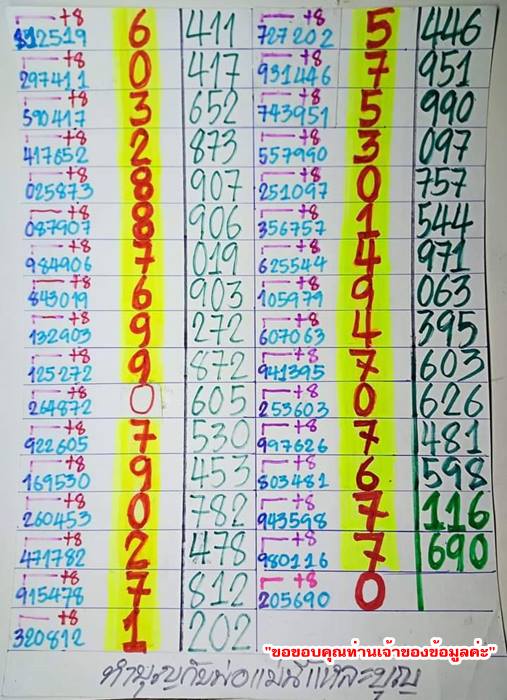 +8
312519 6 411
+8
297411 0 417
+8
590417 3 652
+8
417652 2 873
+8
025873 8 907
+8
087907 8 906
+8
984906 7 019
+8
843019 6 903
+8
132903 9 272
+8
125272 9 872
+8
264872 0 605
+8
922605 7 530
+8
169530 9 453
+8
260453 0 782
+8
471782 2 478
+8
915478 7 812
+8
320812 1 202
+8
727202 5 446
+8
931446 7 951
+8
743951 5 990
+8
557990 3 097
+8
251097 0 757
+8
356757 1 544
+8
625544 4 971
+8
105979 9 063
+8
607063 4 395
+8
941395 7 603
+8
253603 0 626
+8
997626 7 481
+8
803481 6 598
+8
943598 7 116
+8
980116 7 690
+8
205690 0
"ขอขอบคุณท่านเจ้าของข้อมูลค่ะ"
ทำบุญกับพ่อแม่นี่แหละบุญ